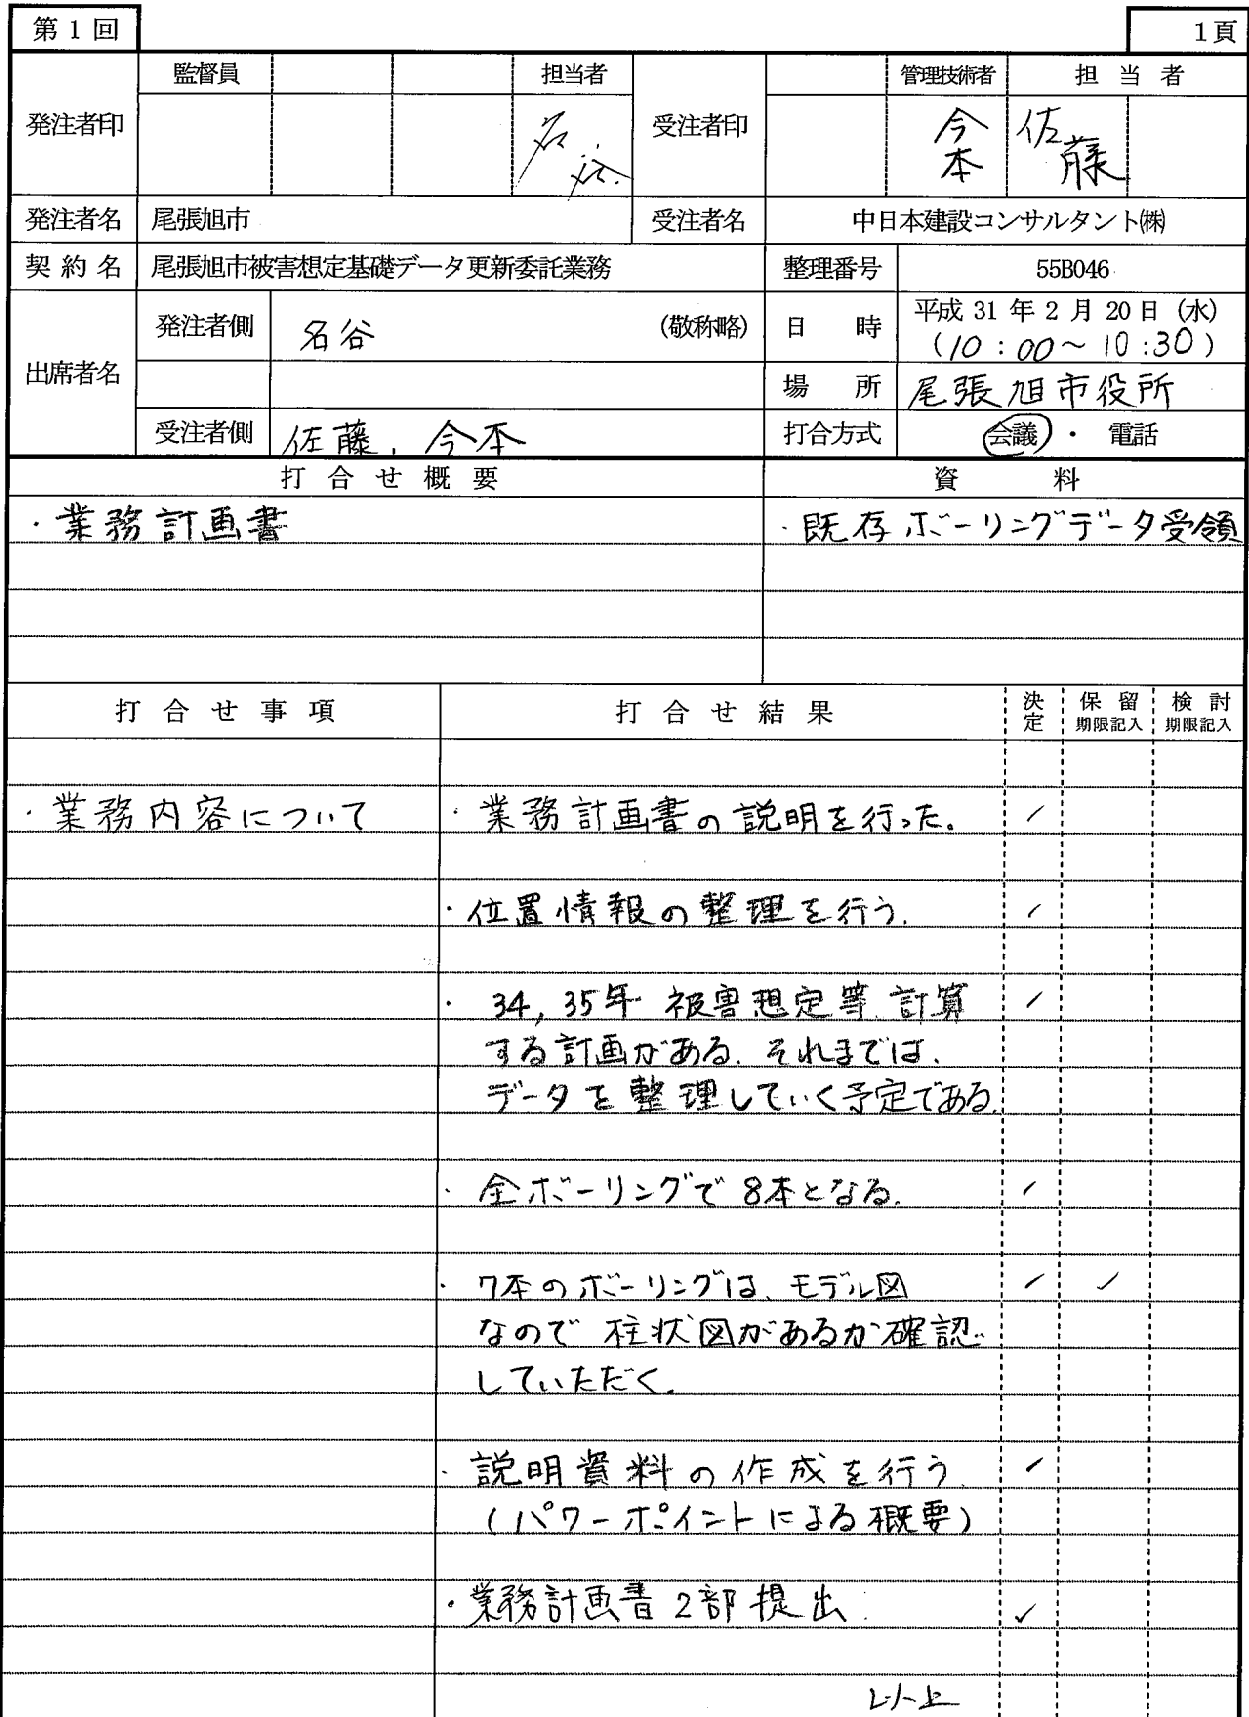 第1回
1頁
発注者印
監督員
担当者
名谷
受注者印
管理技術者
担当者
今本
佐藤
発注者名 尾張旭市
受注者名 中日本建設コンサルタント㈱
契約名 尾張旭市被害想定基礎データ更新委託業務
整理番号 55B046
出席者名
発注者側 名谷 (敬称略)
日時 平成 31 年 2 月 20 日 (水)
(10:00~10:30)
場所 尾張旭市役所
受注者側 佐藤, 今本
打合方式 会議 ・ 電話
打合せ概要
資料
・業務計画書
・既存ボーリングデータ受領
打合せ事項
打合せ結果
決定
保留
期限記入
検討
期限記入
・業務内容について
・業務計画書の説明を行った。 ✓
・位置情報の整理を行う. ✓
・34, 35年 被害想定等 計算 ✓
する計画がある. それまでは、
データを整理していく予定である.
・全ボーリングで 8本となる. ✓
・7本のボーリングは、モデル図 ✓ ✓
なので 柱状図があるか確認
していただく.
・説明資料の作成を行う ✓
(パワーポイントによる概要)
・業務計画書 2部提出. ✓
以上